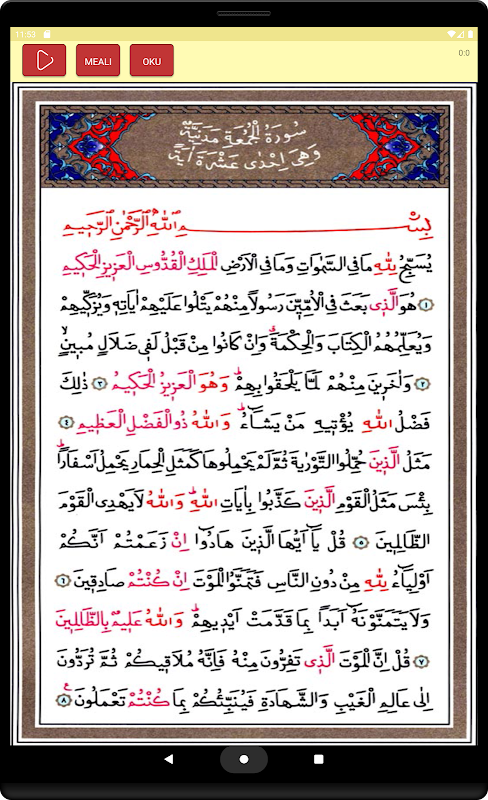 11:53
MEALİ
OKU
0:0
سُورَةُ الْجُمُعَةِ مَدَنِيَّةٌ
وَهِيَ اِحْدٰى عَشْرَةَ اٰيَةً
بِسْمِ اللّٰهِ الرَّحْمٰنِ الرَّحِيمِ
يُسَبِّحُ لِلّٰهِ مَا فِى السَّمٰوَاتِ وَمَا فِى الْاَرْضِ الْمَلِكِ الْقُدُّوسِ الْعَزِيزِ الْحَكِيمِ
﴿١﴾ هُوَ الَّذِى بَعَثَ فِى الْاُمِّيّ۪نَ رَسُولاً مِنْهُمْ يَتْلُوا عَلَيْهِمْ اٰيَاتِهِ وَيُزَكِّيهِمْ
وَيُعَلِّمُهُمُ الْكِتَابَ وَالْحِكْمَةَ وَاِنْ كَانُوا مِنْ قَبْلُ لَفِى ضَلَالٍ مُبِينٍ
﴿٢﴾ وَاٰخَرِينَ مِنْهُمْ لَمَّا يَلْحَقُوا بِهِمْ وَهُوَ الْعَزِيزُ الْحَكِيمُ ﴿٣﴾ ذٰلِكَ
فَضْلُ اللّٰهِ يُؤْتِيهِ مَنْ يَشَاءُ وَاللّٰهُ ذُو الْفَضْلِ الْعَظِيمِ ﴿٤﴾
مَثَلُ الَّذِينَ حُمِّلُوا التَّوْرٰيةَ ثُمَّ لَمْ يَحْمِلُوهَا كَمَثَلِ الْحِمَارِ يَحْمِلُ اَسْفَاراً
بِئْسَ مَثَلُ الْقَوْمِ الَّذِينَ كَذَّبُوا بِاٰيَاتِ اللّٰهِ وَاللّٰهُ لَا يَهْدِى الْقَوْمَ
الظَّالِمِينَ ﴿٥﴾ قُلْ يَا اَيُّهَا الَّذِينَ هَادُوا اِنْ زَعَمْتُمْ اَنَّكُمْ
اَوْلِيَاءُ لِلّٰهِ مِنْ دُونِ النَّاسِ فَتَمَنَّوُا الْمَوْتَ اِنْ كُنْتُمْ صَادِقِينَ ﴿٦﴾
وَلَا يَتَمَنَّوْنَهُ اَبَداً بِمَا قَدَّمَتْ اَيْدِيهِمْ وَاللّٰهُ عَلِيمٌ بِالظَّالِمِينَ
﴿٧﴾ قُلْ اِنَّ الْمَوْتَ الَّذِى تَفِرُّونَ مِنْهُ فَاِنَّهُ مُلَاقِيكُمْ ثُمَّ تُرَدُّونَ
اِلٰى عَالِمِ الْغَيْبِ وَالشَّهَادَةِ فَيُنَبِّئُكُمْ بِمَا كُنْتُمْ تَعْمَلُونَ ﴿٨﴾